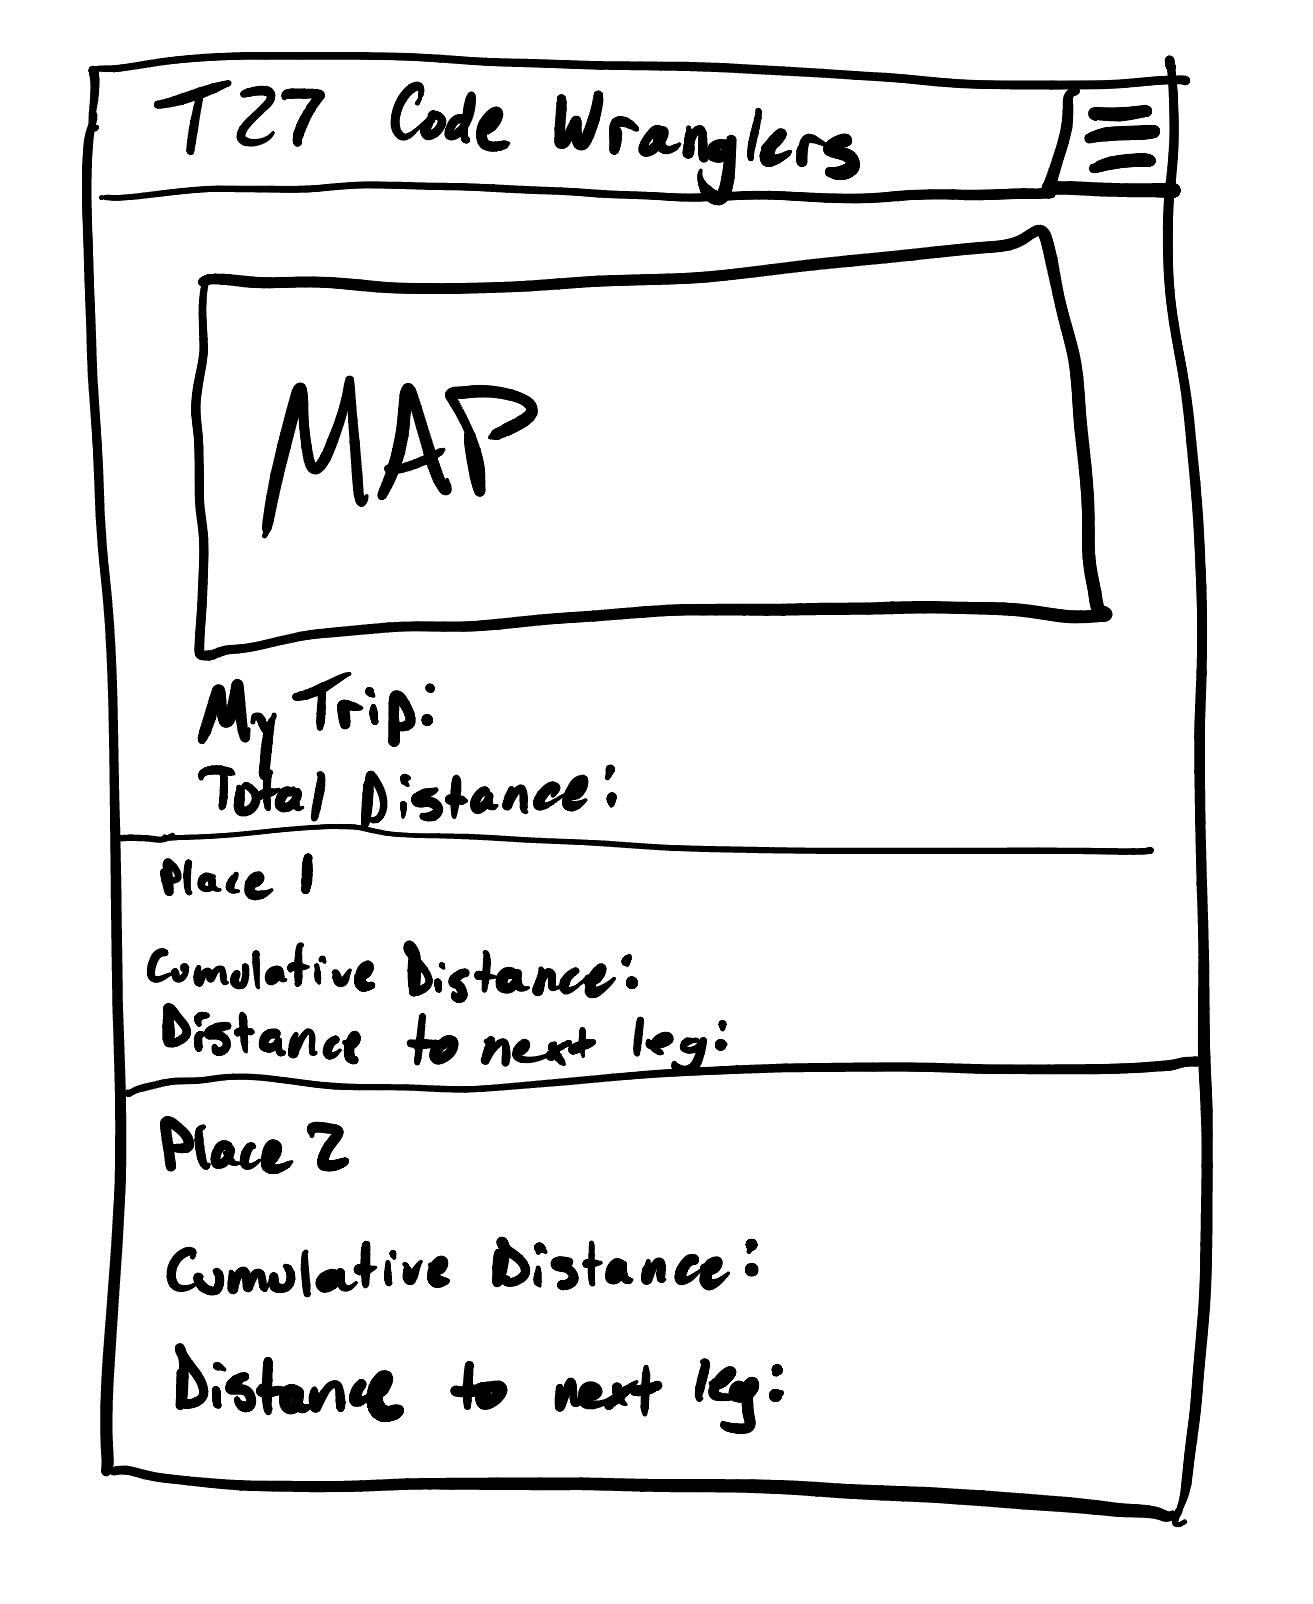 T27 Code Wranglers
MAP
My Trip:
Total Distance:
Place 1
Cumulative Distance:
Distance to next leg:
Place 2
Cumulative Distance:
Distance to next leg: